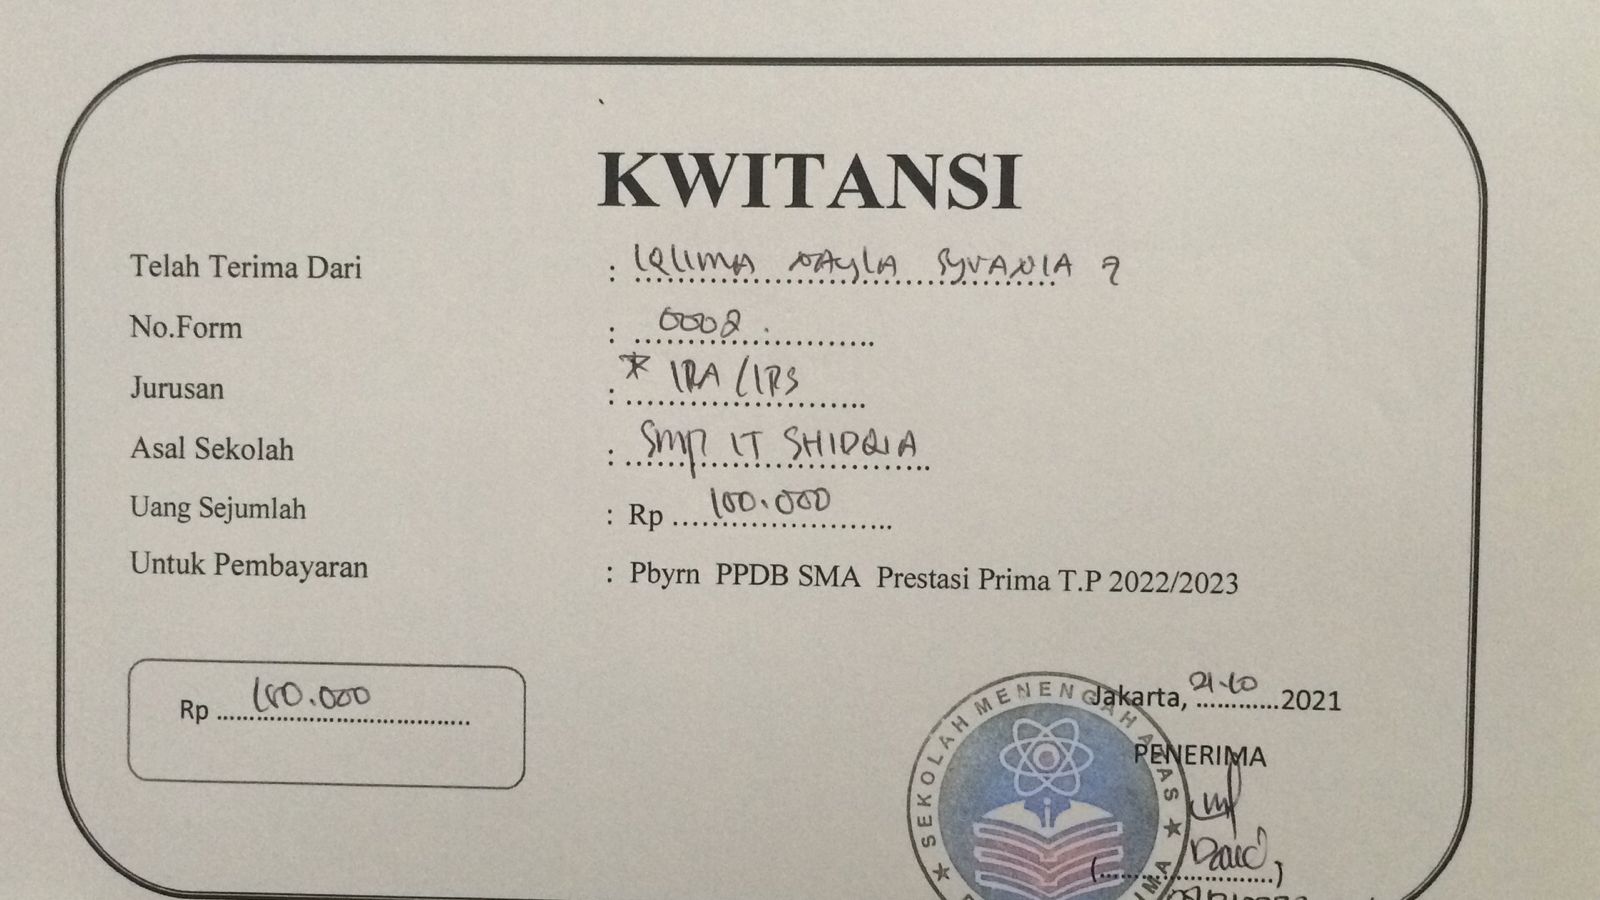 KWITANSI
Telah Terima Dari : IQLIMA NAYLA SYVANIA Q
No.Form : 0002.
Jurusan : * IPA / IPS
Asal Sekolah : SMP IT SHIDQIA
Uang Sejumlah : Rp 100.000
Untuk Pembayaran : Pbyrn PPDB SMA Prestasi Prima T.P 2022/2023
Rp 100.000
Jakarta, 21-10 2021
PENERIMA
SEKOLAH MENENGAH ATAS